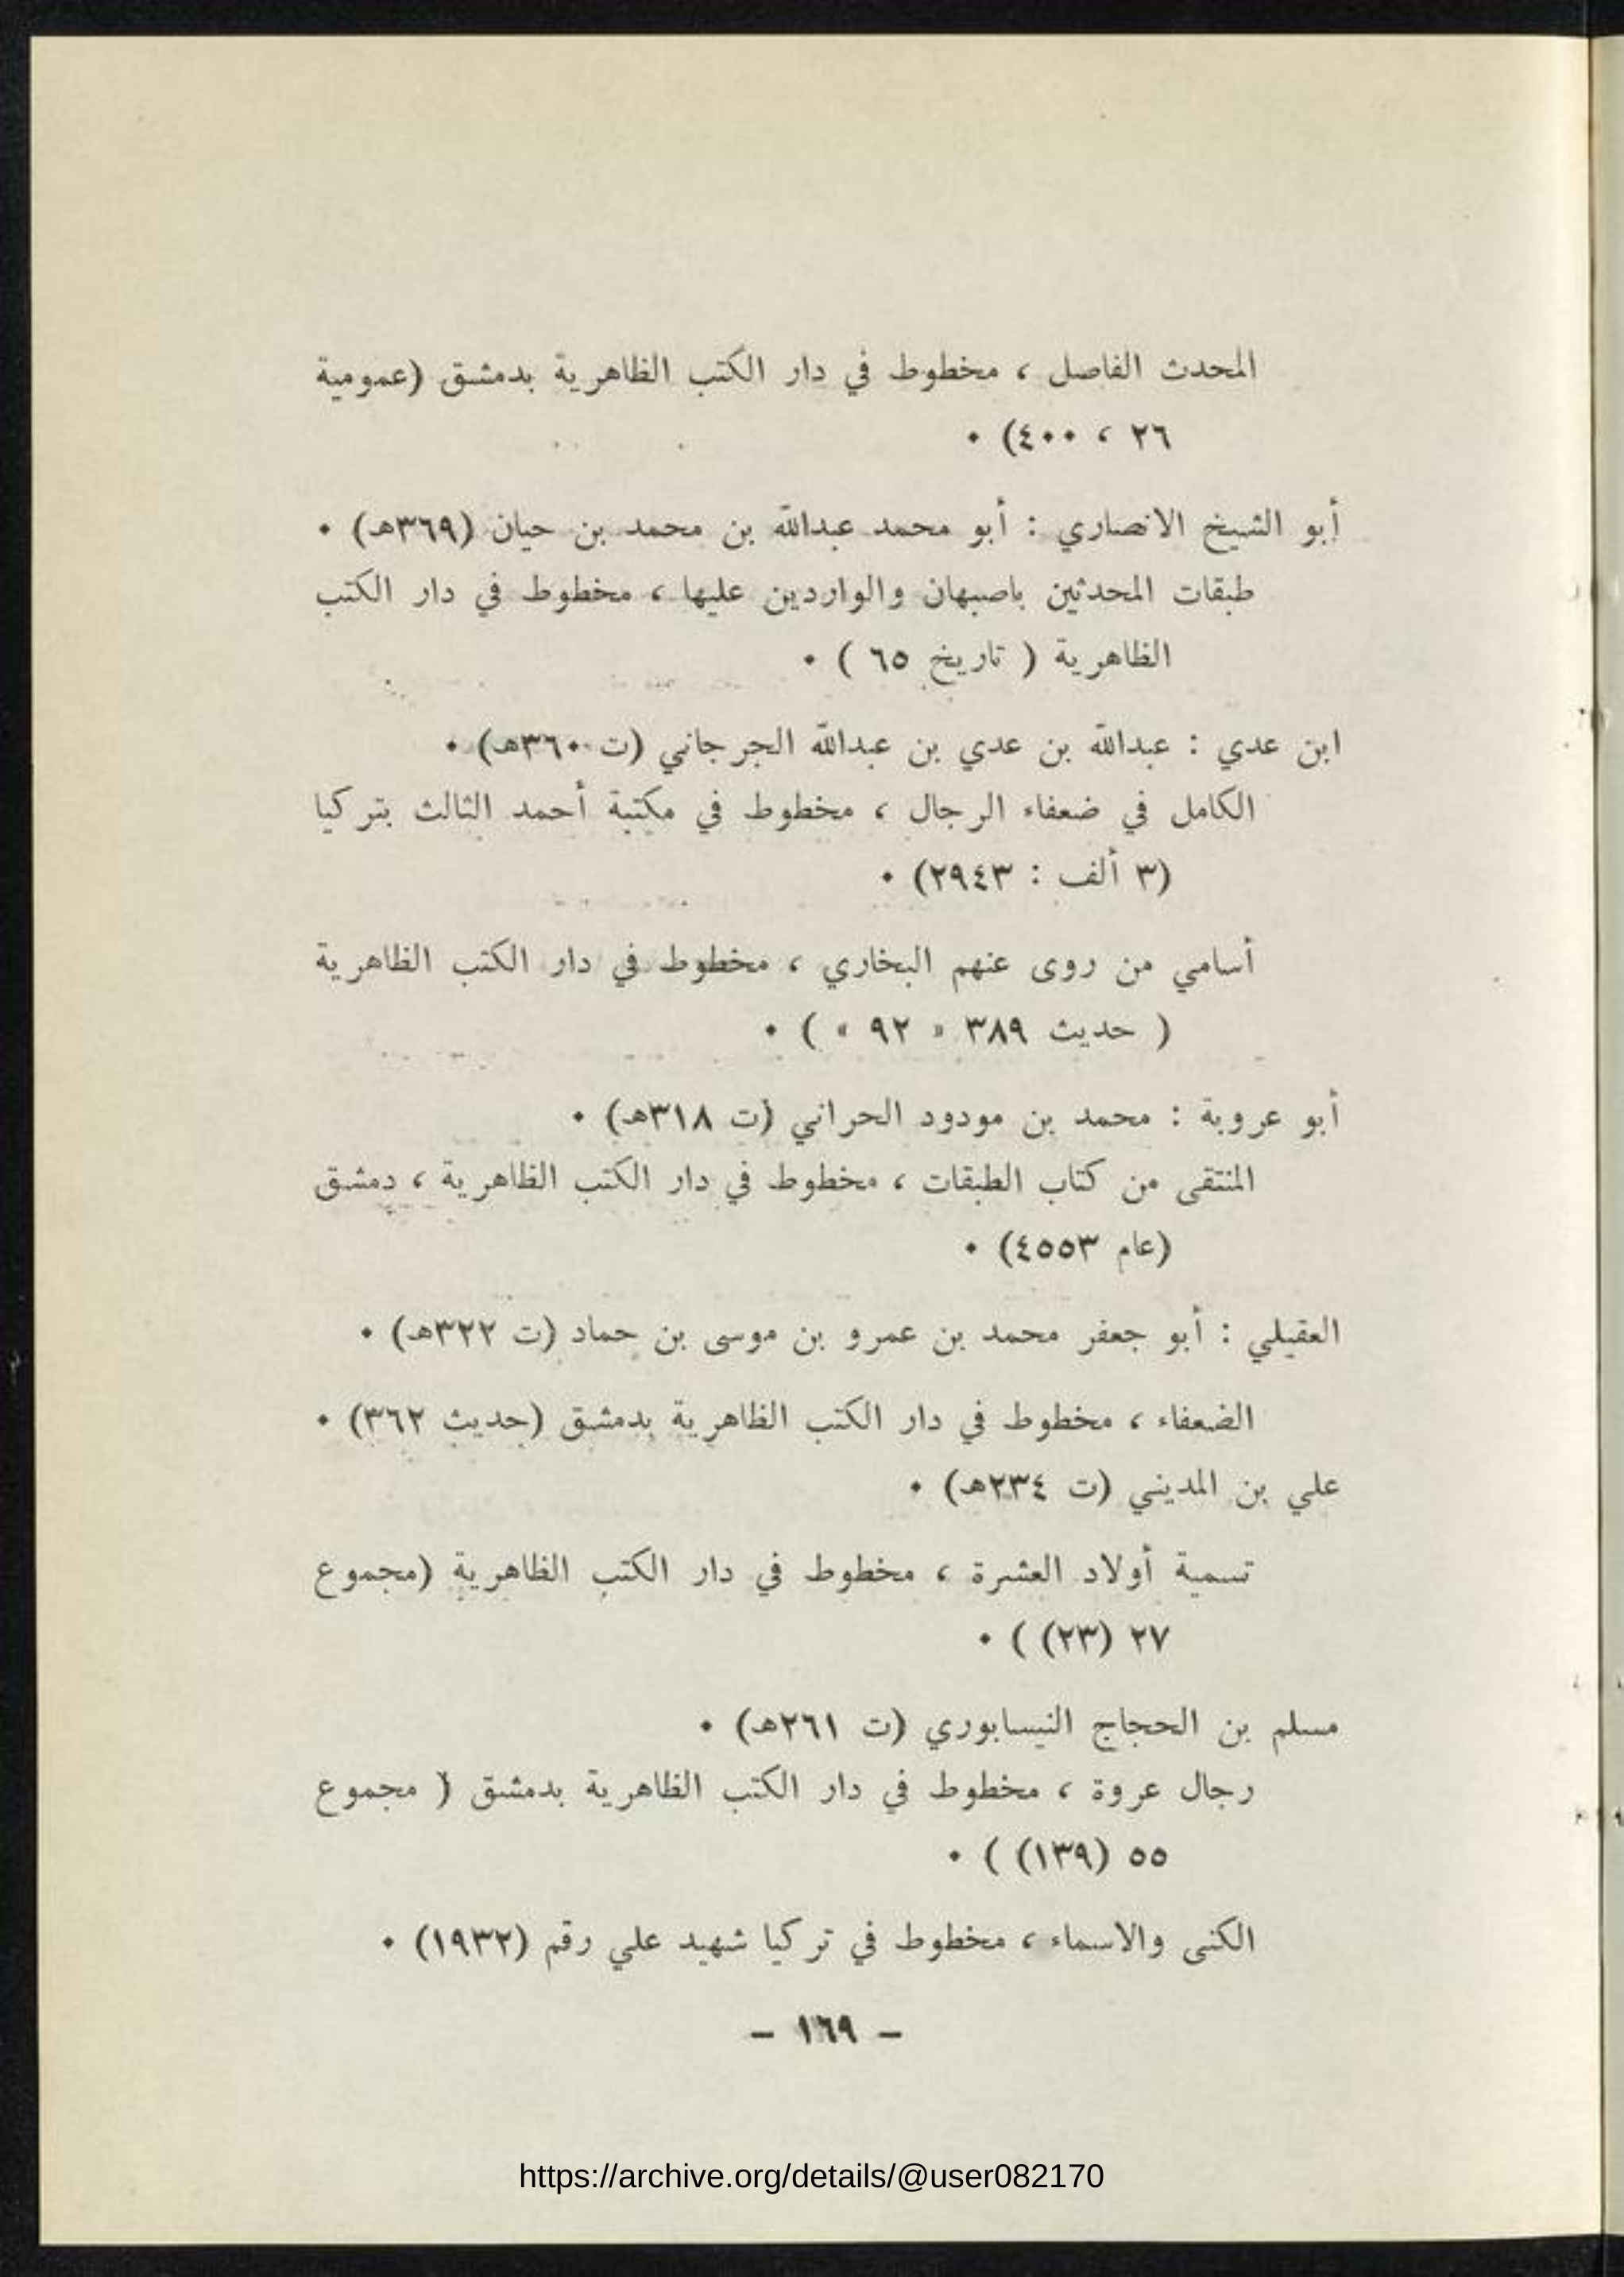 المحدث الفاصل ، مخطوط في دار الكتب الظاهرية بدمشق (عمومية
٢٦ ، ٤٠٠) ٠
أبو الشيخ الانصاري : أبو محمد عبدالله بن محمد بن حيان (٣٦٩هـ) ٠
طبقات المحدثين باصبهان والواردين عليها ، مخطوط في دار الكتب
الظاهرية ( تاريخ ٦٥ ) ٠
ابن عدي : عبدالله بن عدي بن عبدالله الجرجاني (ت ٣٦٠هـ) ٠
الكامل في ضعفاء الرجال ، مخطوط في مكتبة أحمد الثالث بتركيا
(٣ ألف : ٢٩٤٣) ٠
أسامي من روى عنهم البخاري ، مخطوط في دار الكتب الظاهرية
( حديث ٣٨٩ « ٩٢ » ) ٠
أبو عروبة : محمد بن مودود الحراني (ت ٣١٨هـ) ٠
المنتقى من كتاب الطبقات ، مخطوط في دار الكتب الظاهرية ، دمشق
(عام ٤٥٥٣) ٠
العقيلي : أبو جعفر محمد بن عمرو بن موسى بن حماد (ت ٣٢٢هـ) ٠
الضعفاء ، مخطوط في دار الكتب الظاهرية بدمشق (حديث ٣٦٢) ٠
علي بن المديني (ت ٢٣٤هـ) ٠
تسمية أولاد العشرة ، مخطوط في دار الكتب الظاهرية (مجموع
٢٧ (٢٣) ) ٠
مسلم بن الحجاج النيسابوري (ت ٢٦١هـ) ٠
رجال عروة ، مخطوط في دار الكتب الظاهرية بدمشق ( مجموع
٥٥ (١٣٩) ) ٠
الكنى والاسماء ، مخطوط في تركيا شهيد علي رقم (١٩٣٢) ٠
– ١٦٩ –
https://archive.org/details/@user082170